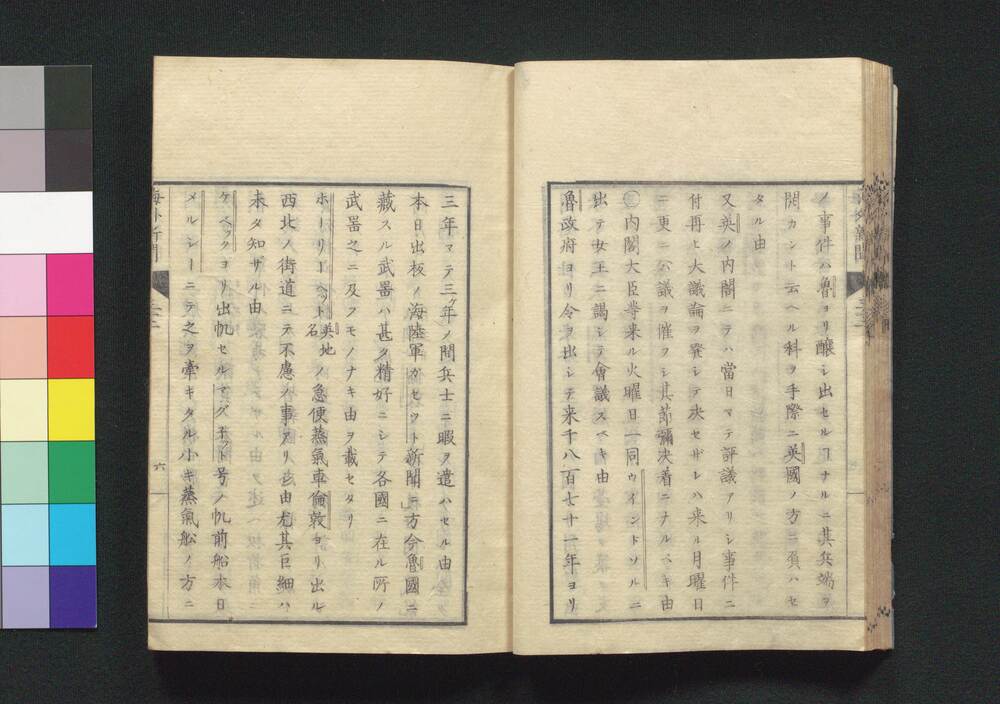 ノ事件ハ魯ヨリ醸シ出セルヿナルニ其兵端ヲ
開カント云ヘル科ヲ手際ニ英國ノ方ニ負ハセ
タル由
又英ノ内閣ニテハ當日マテ評議アリシ事件ニ
付再ヒ大議論ヲ発シテ决セザレハ来ル月曜日
ニ更ニ議ヲ催フシ其節彌决着ニナルベキ由
内閣大臣等来ル火曜日一同ウインドソルニ
出テ女王ニ謁シテ會議スベキ由
魯政府ヨリ令ヲ出シテ来千八百七十一年ヨリ
三年マテ三ケ年ノ間兵士ニ暇ヲ遣ハセル由
本日出板ノ海陸軍ガセツト新聞ニ方今魯國ニ
藏スル武器ハ甚タ精好ニシテ各國ニ在ル所ノ
武器之ニ及フモノナキ由ヲ載セタリ
ホーリーヘット英地名ノ急便蒸氣車倫敦ヨリ出ル
西北ノ街道ニテ不慮ノ事アリ由尤其巨細ハ
未タ知ザル由
ケベックヨリ出帆セルマグネット号ノ帆前船本日
メルシーニテ之ヲ牽キタル小キ蒸氣船ノ方ニ
海外新聞
六